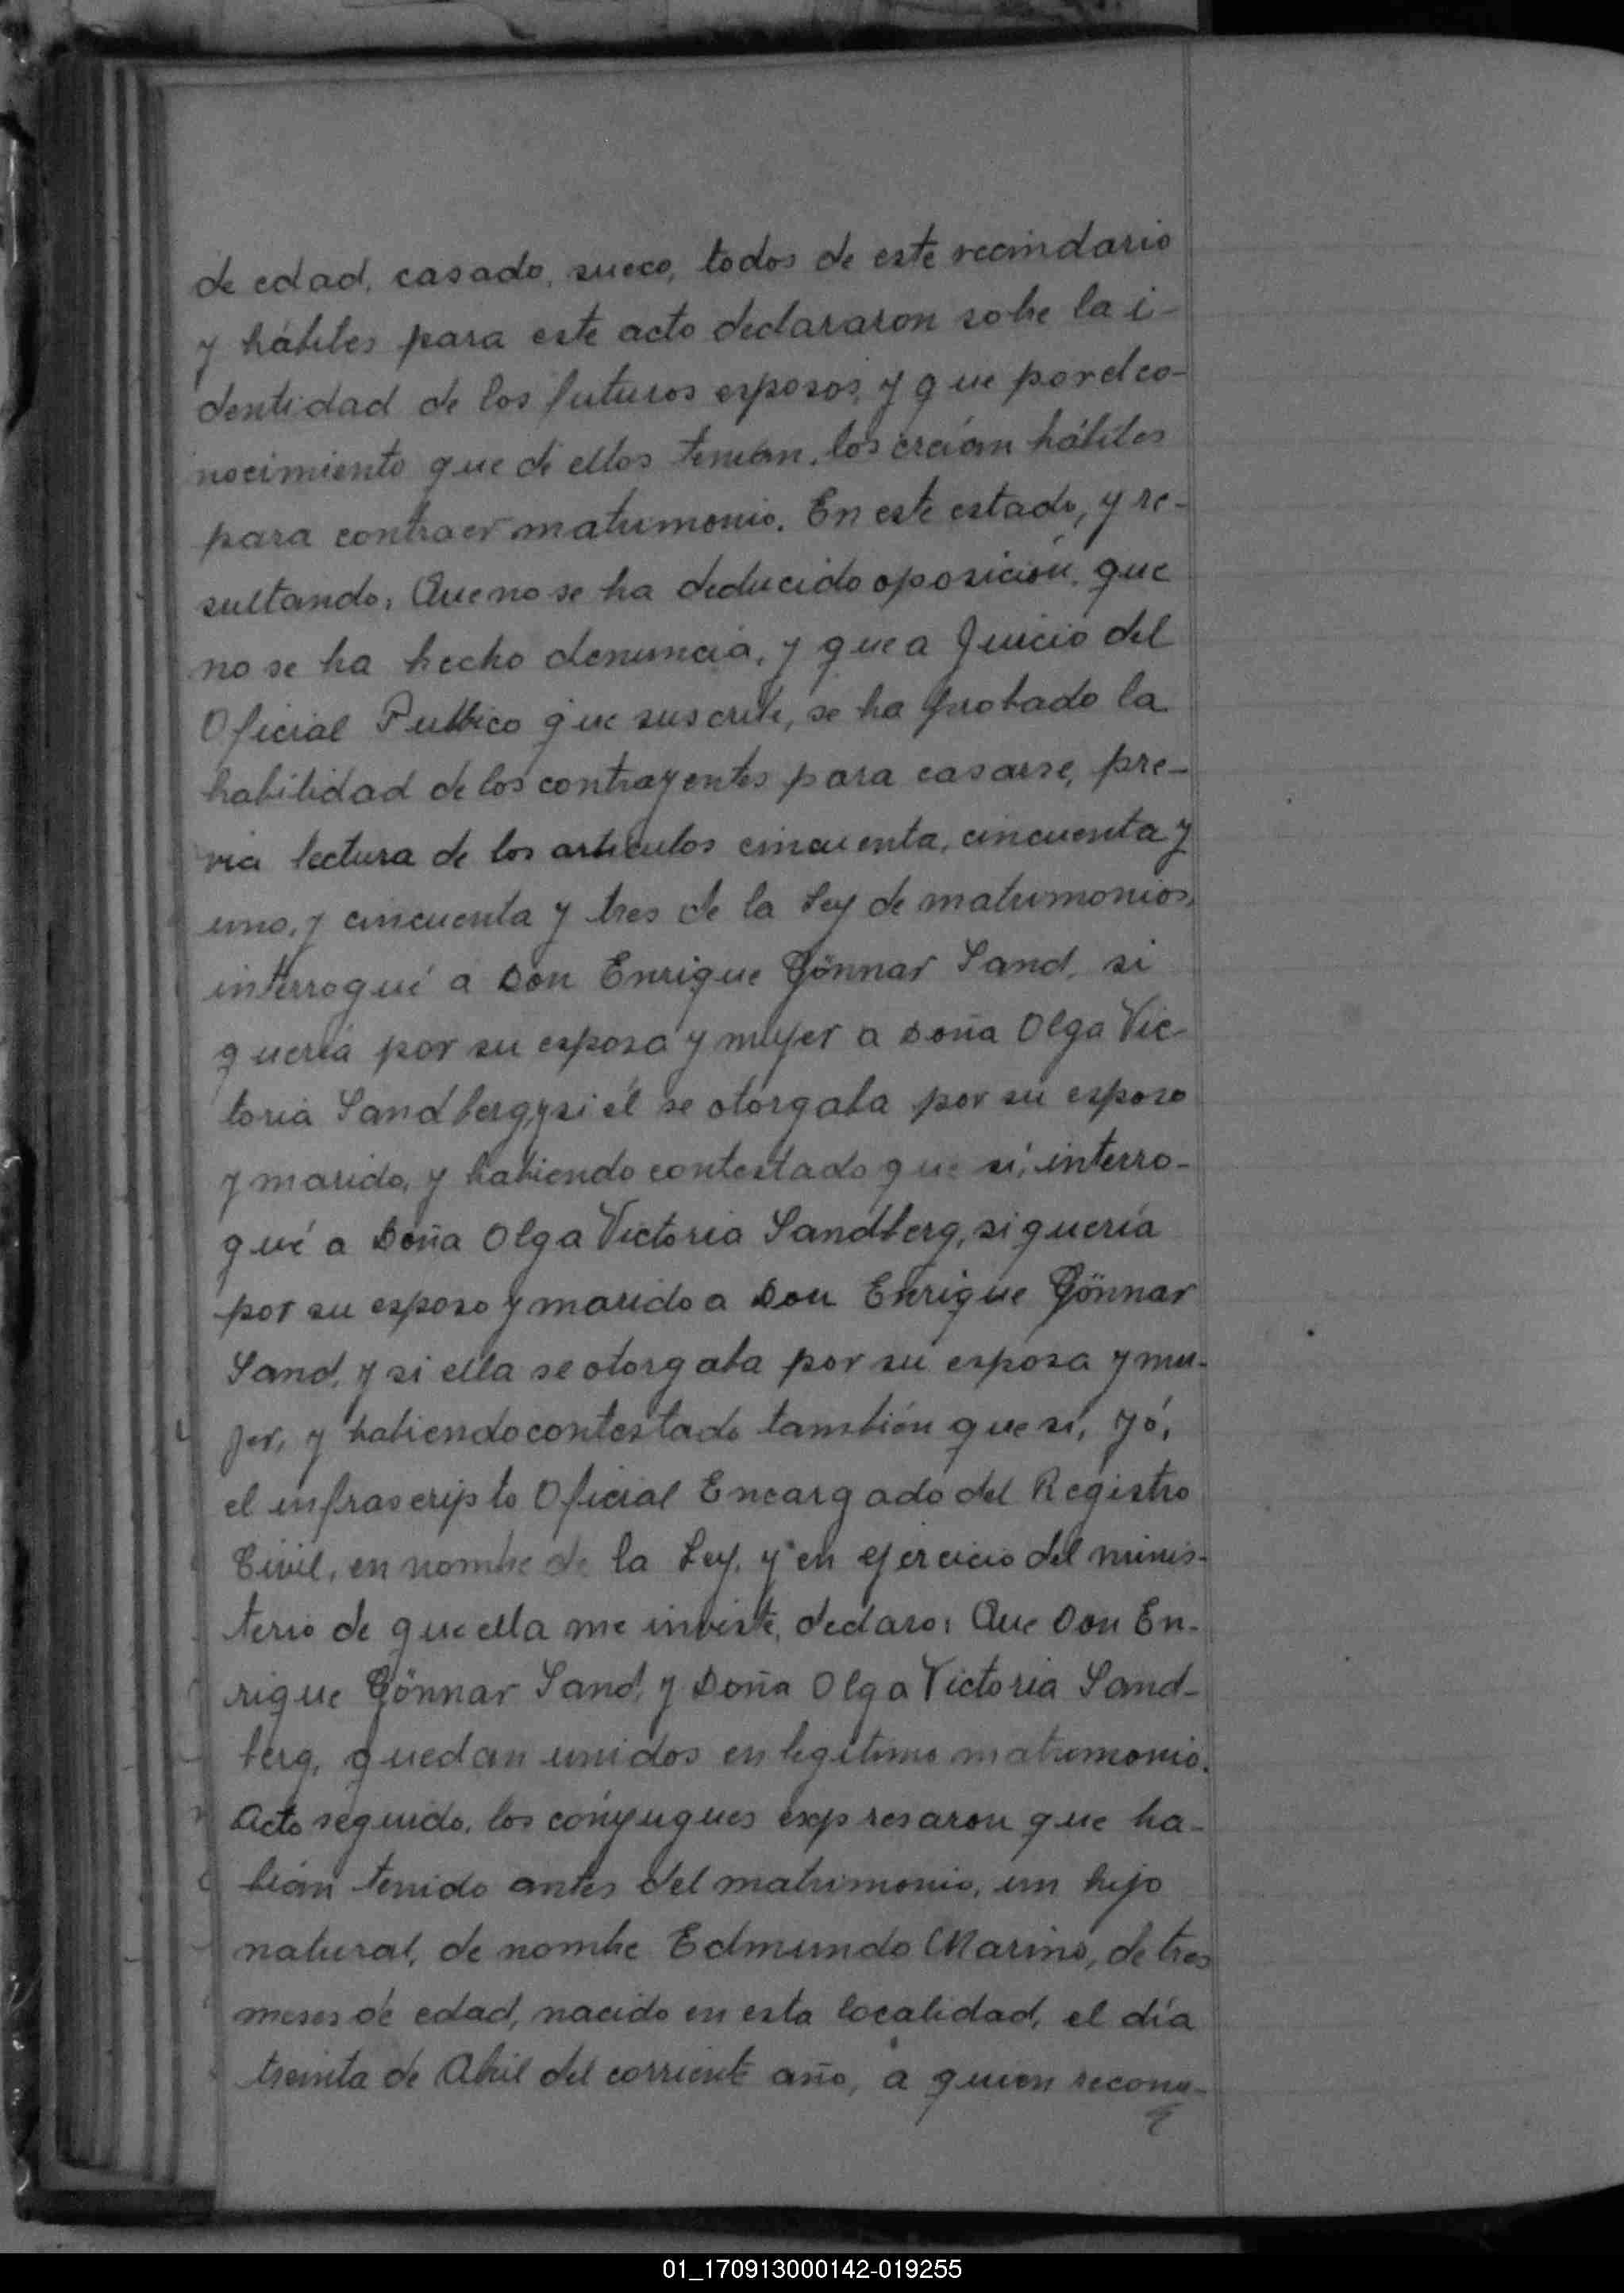 de edad, casado, sueco, todos de este vecindario
y hábiles para este acto declararon sobre la i-
dentidad de los futuros esposos, y que por el co-
nocimiento que de ellos tenían, los creían hábiles
para contraer matrimonio. En este estado, y re-
sultando: Que no se ha deducido oposición, que
no se ha hecho denuncia, y que a juicio del
Oficial Publico que suscribe, se ha probado la
habilidad de los contrayentes para casarse, pre-
via lectura de los artículos cincuenta, cincuenta y
uno, y cincuenta y tres de la Ley de matrimonios,
interrogué a Don Enrique Gönnar Sand, si
quería por su esposa y mujer a Doña Olga Vic-
toria Sandberg, y si él se otorgaba por su esposo
y marido, y habiendo contestado que sí, interro-
gué a Doña Olga Victoria Sandberg, si quería
por su esposo y marido a Don Enrique Gönnar
Sand, y si ella se otorgaba por su esposa y mu-
jer, y habiendo contestado también que sí, yó,
el infrascripto Oficial Encargado del Registro
Civil, en nombre de la Ley, y en ejercicio del minis-
terio de que ella me inviste, declaro: Que Don En-
rique Gönnar Sand, y Doña Olga Victoria Sand-
berg, quedan unidos en legítimo matrimonio.
Acto seguido, los cónyugues expresaron que ha-
bían tenido antes del matrimonio, un hijo
natural, de nombre Edmundo Marino, de tres
meses de edad, nacido en esta localidad, el día
treinta de Abril del corriente año, a quien recono-
01_170913000142-019255